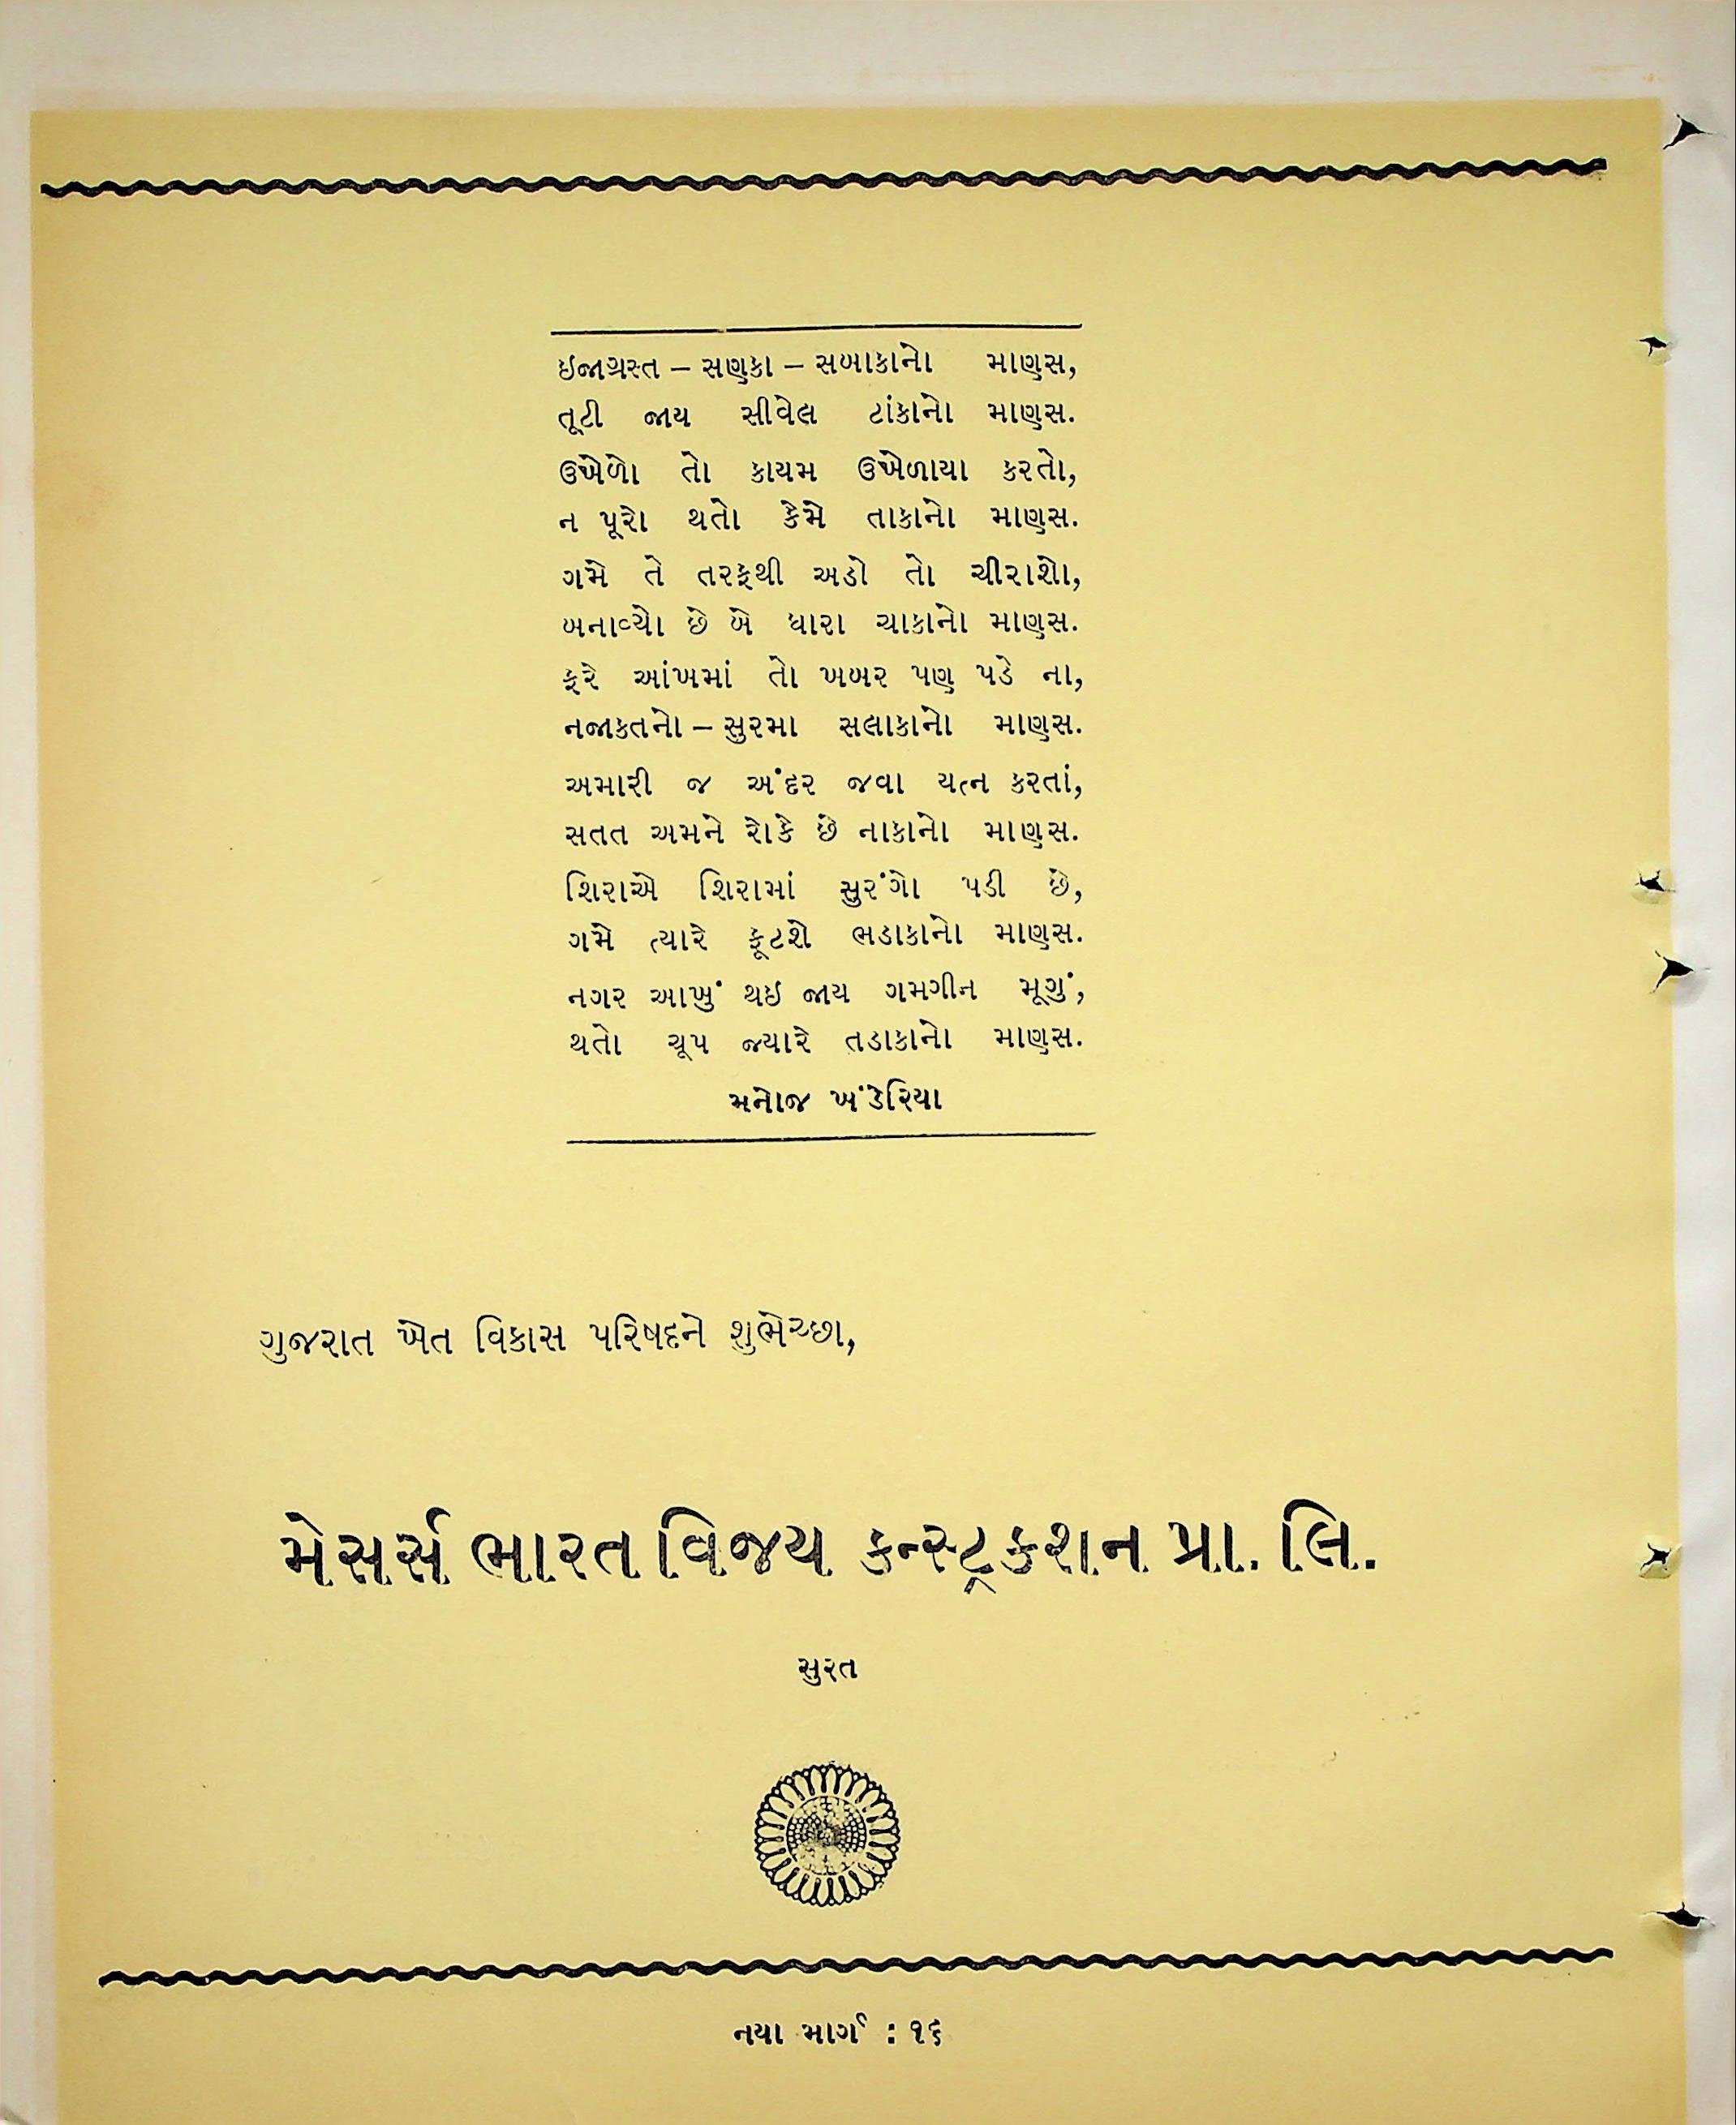 ઇજાગ્રસ્ત – સણકા – સબાકાનો માણસ,
તૂટી જાય સીવેલ ટાંકાનો માણસ.
ઉખેળો તો કાયમ ઉખેળાયા કરતો,
ન પૂરો થતો કેમે તાકાનો માણસ.
ગમે તે તરફથી અડો તો ચીરાશો,
બનાવ્યો છે બે ધારા ચાકાનો માણસ.
ફરે આંખમાં તો ખબર પણ પડે ના,
નજાકતનો – સુરમા સલાકાનો માણસ.
અમારી જ અંદર જવા યત્ન કરતાં,
સતત અમને રોકે છે નાકાનો માણસ.
શિરાએ શિરામાં સુરંગો પડી છે,
ગમે ત્યારે ફૂટશે ભડાકાનો માણસ.
નગર આખું થઇ જાય ગમગીન મૂગું,
થતો ચૂપ જ્યારે તડાકાનો માણસ.
મનોજ ખંડેરિયા
ગુજરાત ખેત વિકાસ પરિષદને શુભેચ્છા,
મેસર્સ ભારત વિજય કન્સ્ટ્રકશન પ્રા. લિ.
સુરત
નયા માર્ગ : ૧૬